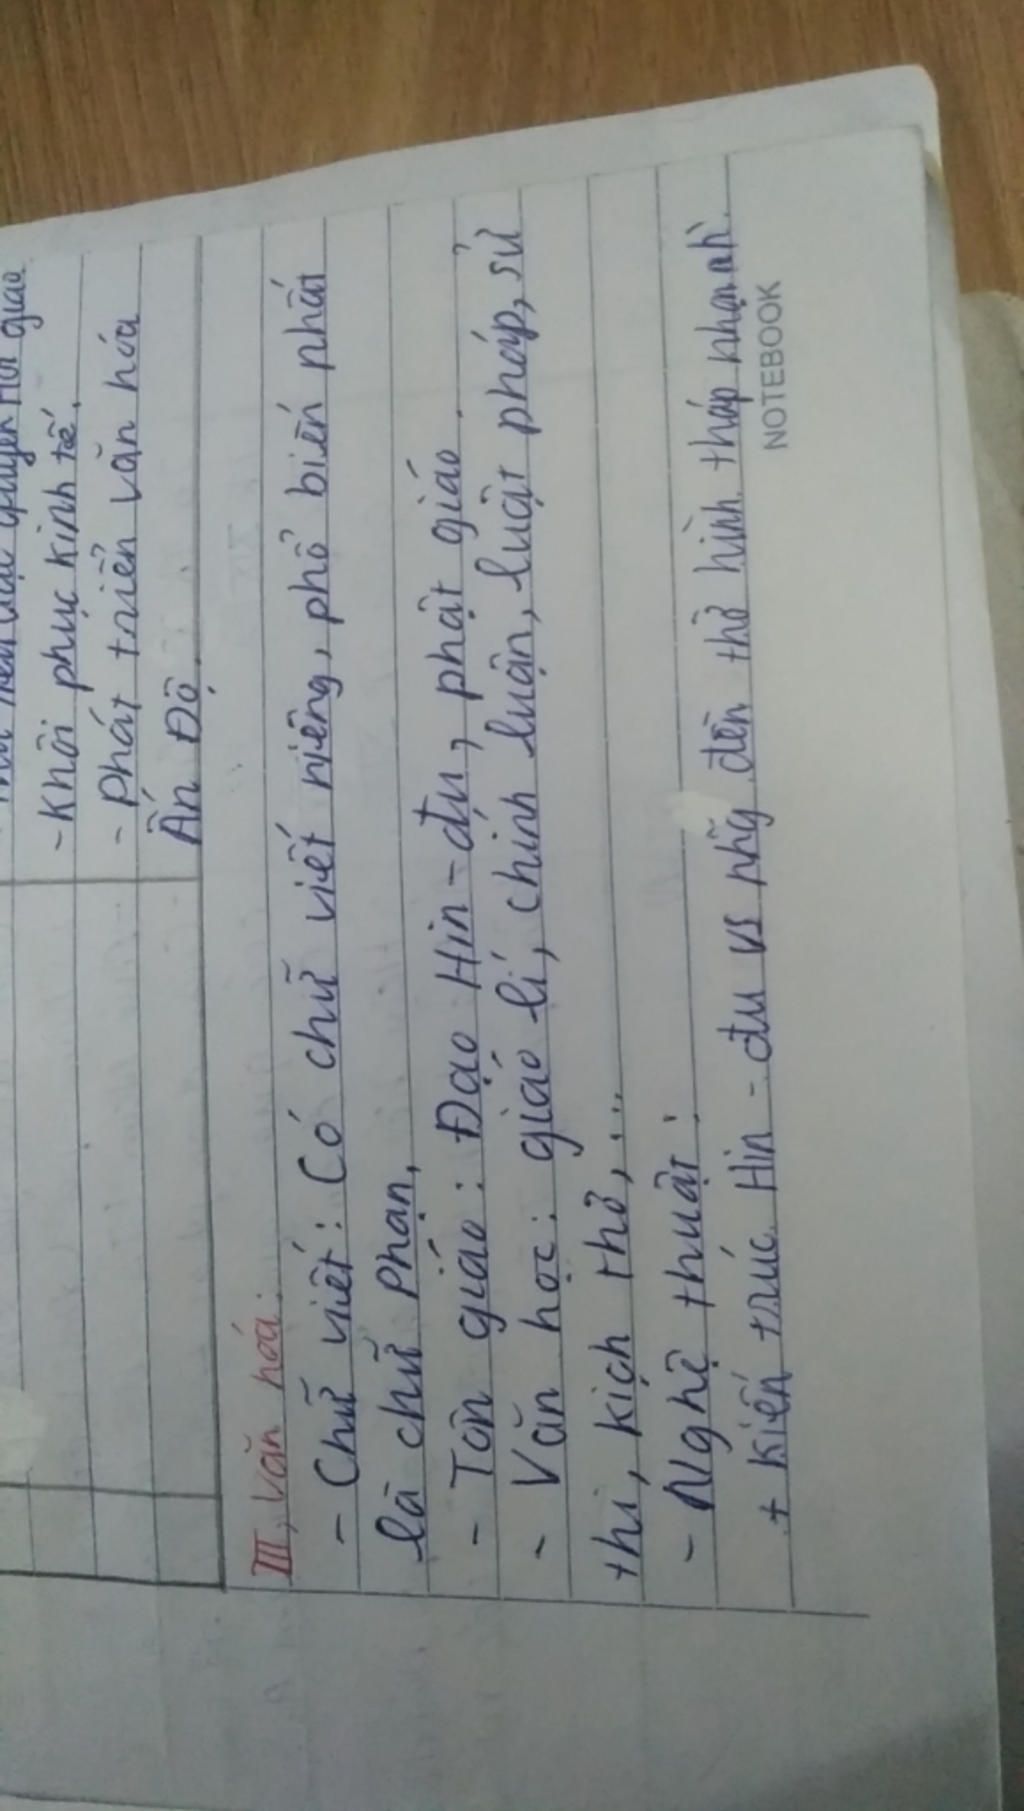 Hồi giáo
- Khôi phục kinh tế.
- Phát triển văn hóa
Ấn Độ.
III, Văn hóa:
- Chữ viết: Có chữ viết riêng, phổ biến nhất
là chữ Phạn.
- Tôn giáo: Đạo Hin-đu, phật giáo.
- Văn học: giáo lí, chính luận, luật pháp, sử
thi, kịch thơ,...
- Nghệ thuật:
+ Kiến trúc Hin-đu vs nhg̃ đền thờ hình tháp nhọn
NOTEBOOK